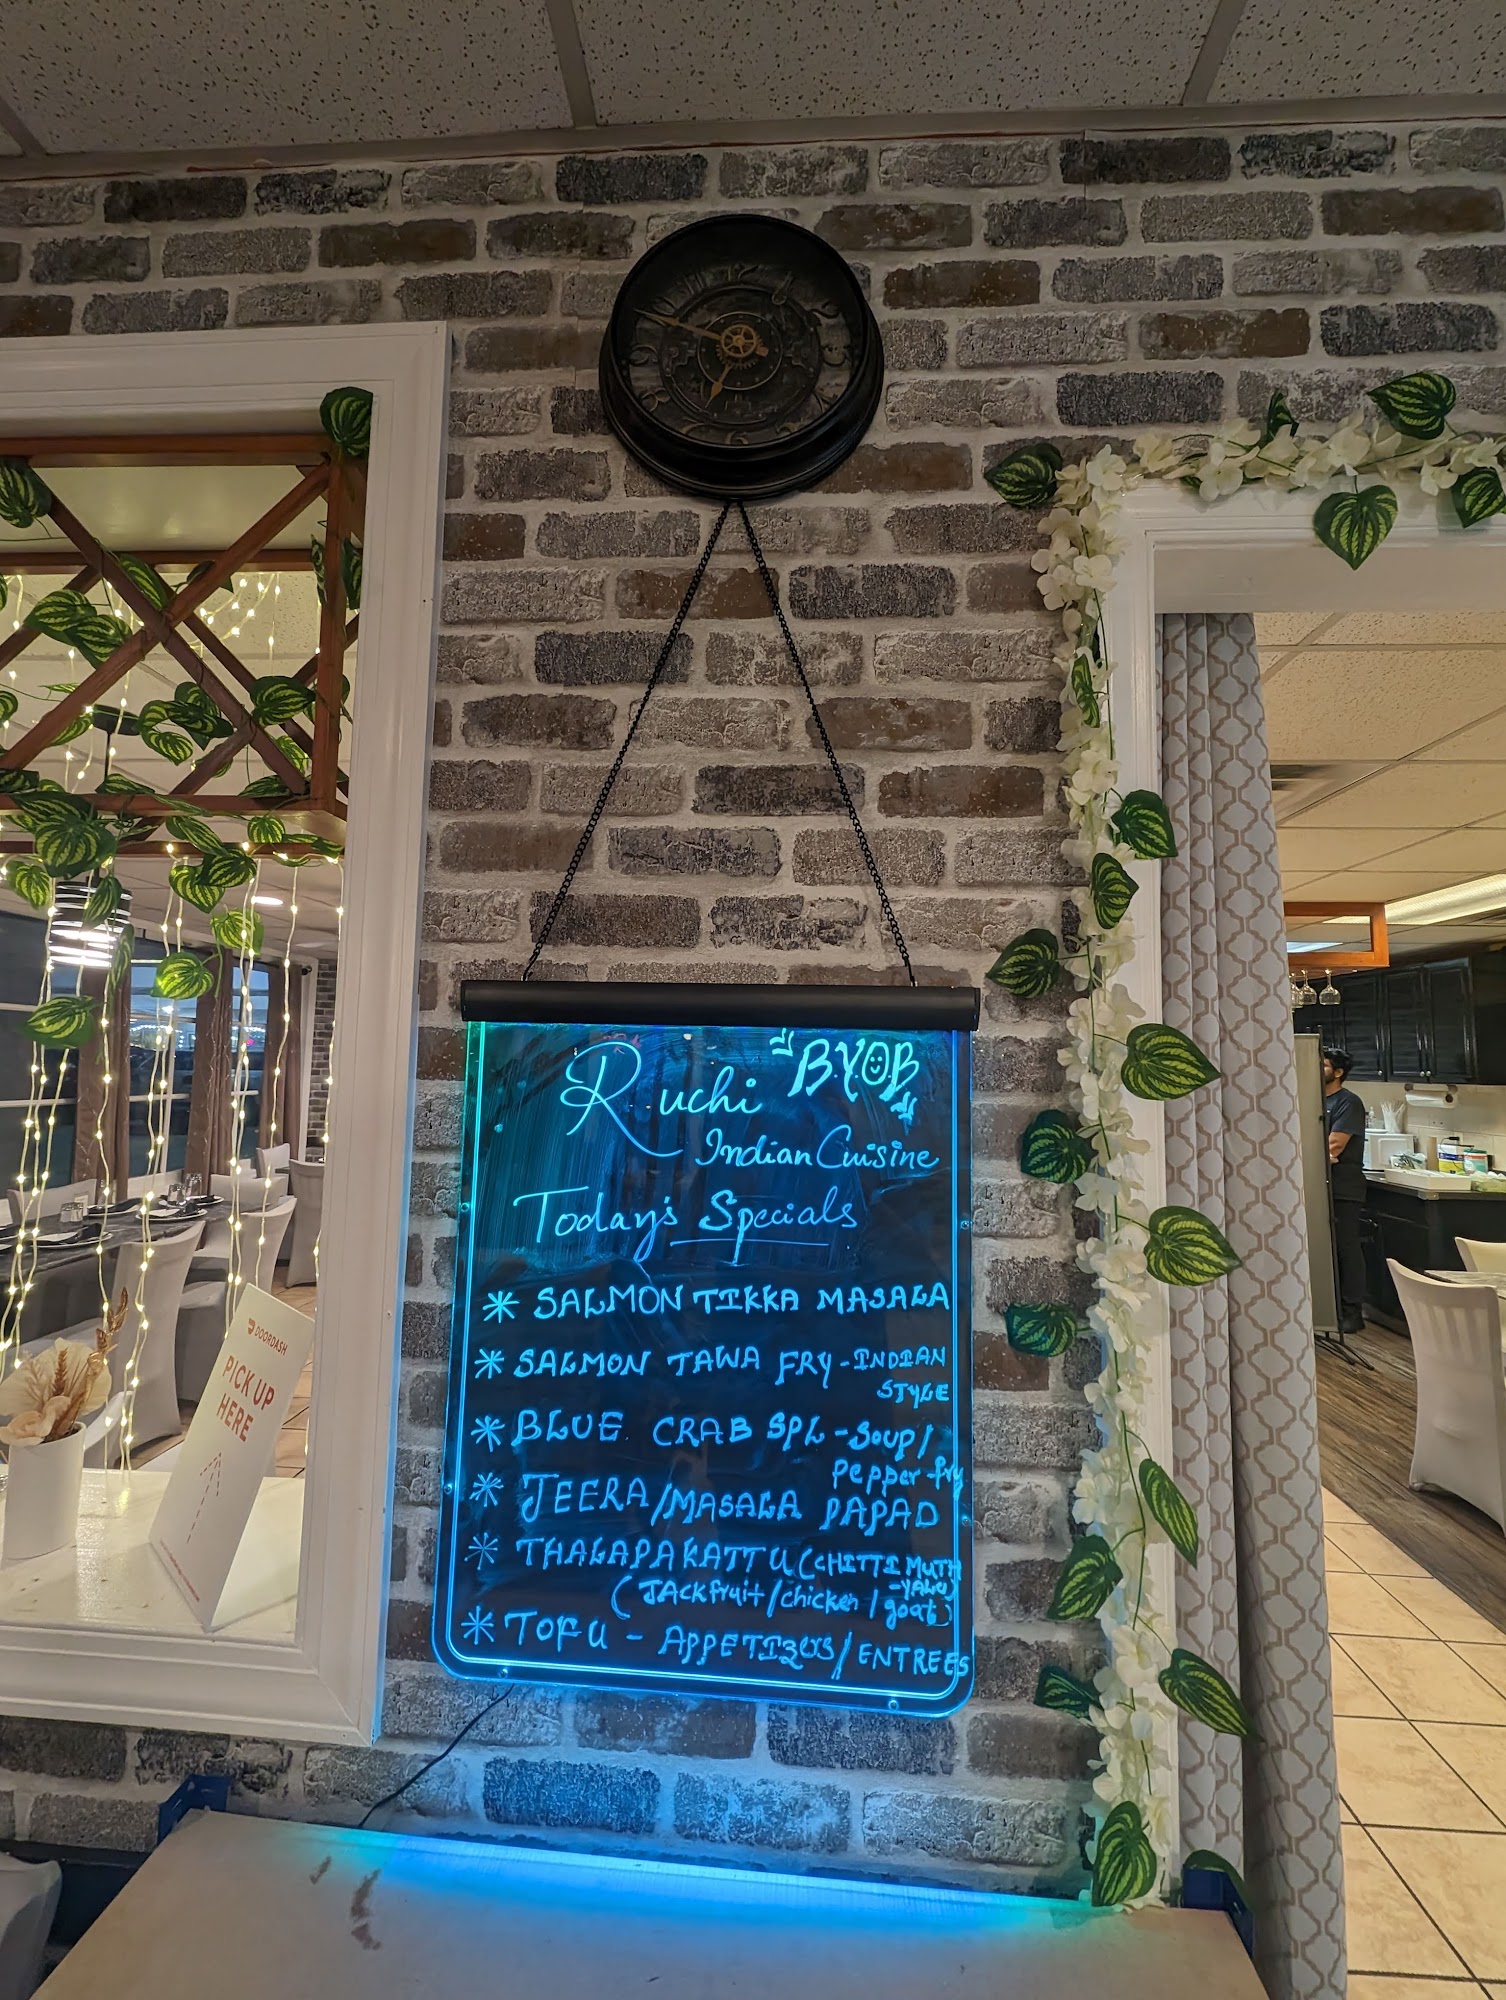 Ruchi "BYOB"
Indian Cuisine
Today's Specials
* SALMON TIKKA MASALA
* SALMON TAWA FRY - INDIAN
STYLE
* BLUE CRAB SPL - Soup/
Pepper-fry
* JEERA/MASALA PAPAD
* THALAPAKATTU (CHITTI MUTH
-YALU)
(JACKfruit/chicken/goat)
* TOFU - APPETIZers/ENTREES
DOORDASH
PICK UP
HERE